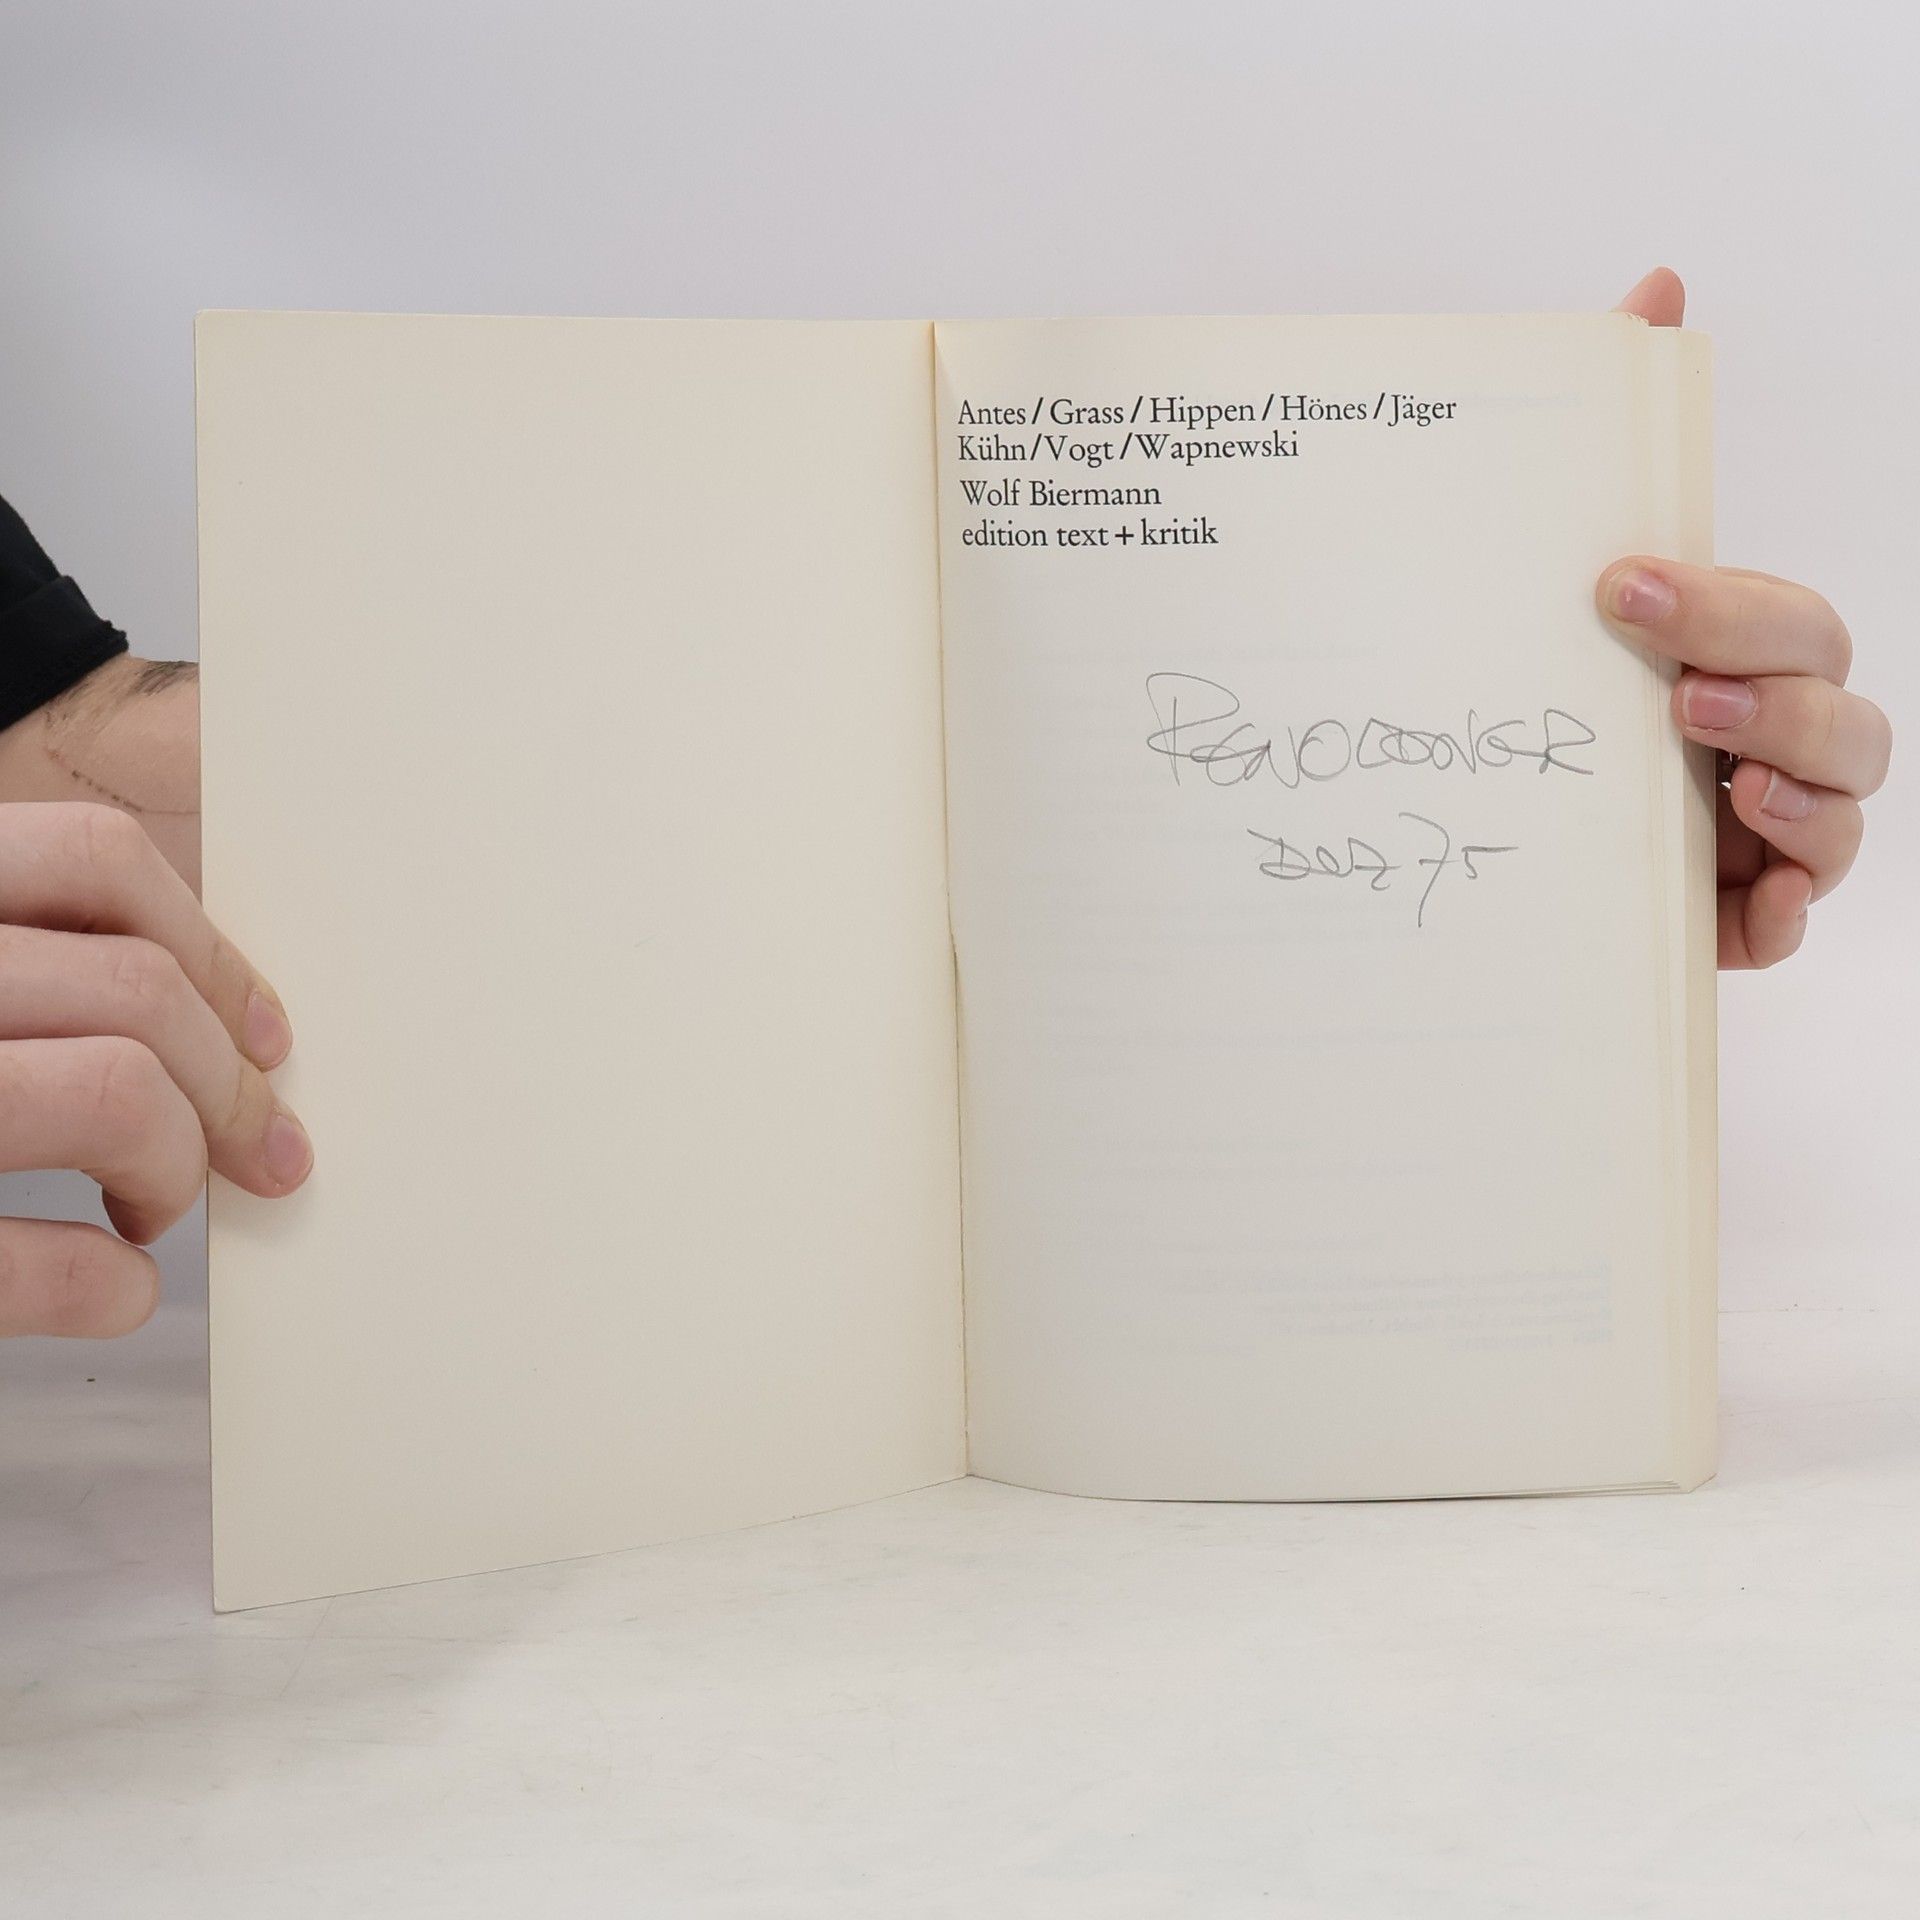 Antes / Grass / Hippen / Hönes / Jäger
Kühn / Vogt / Wapnewski
Wolf Biermann
edition text + kritik
75